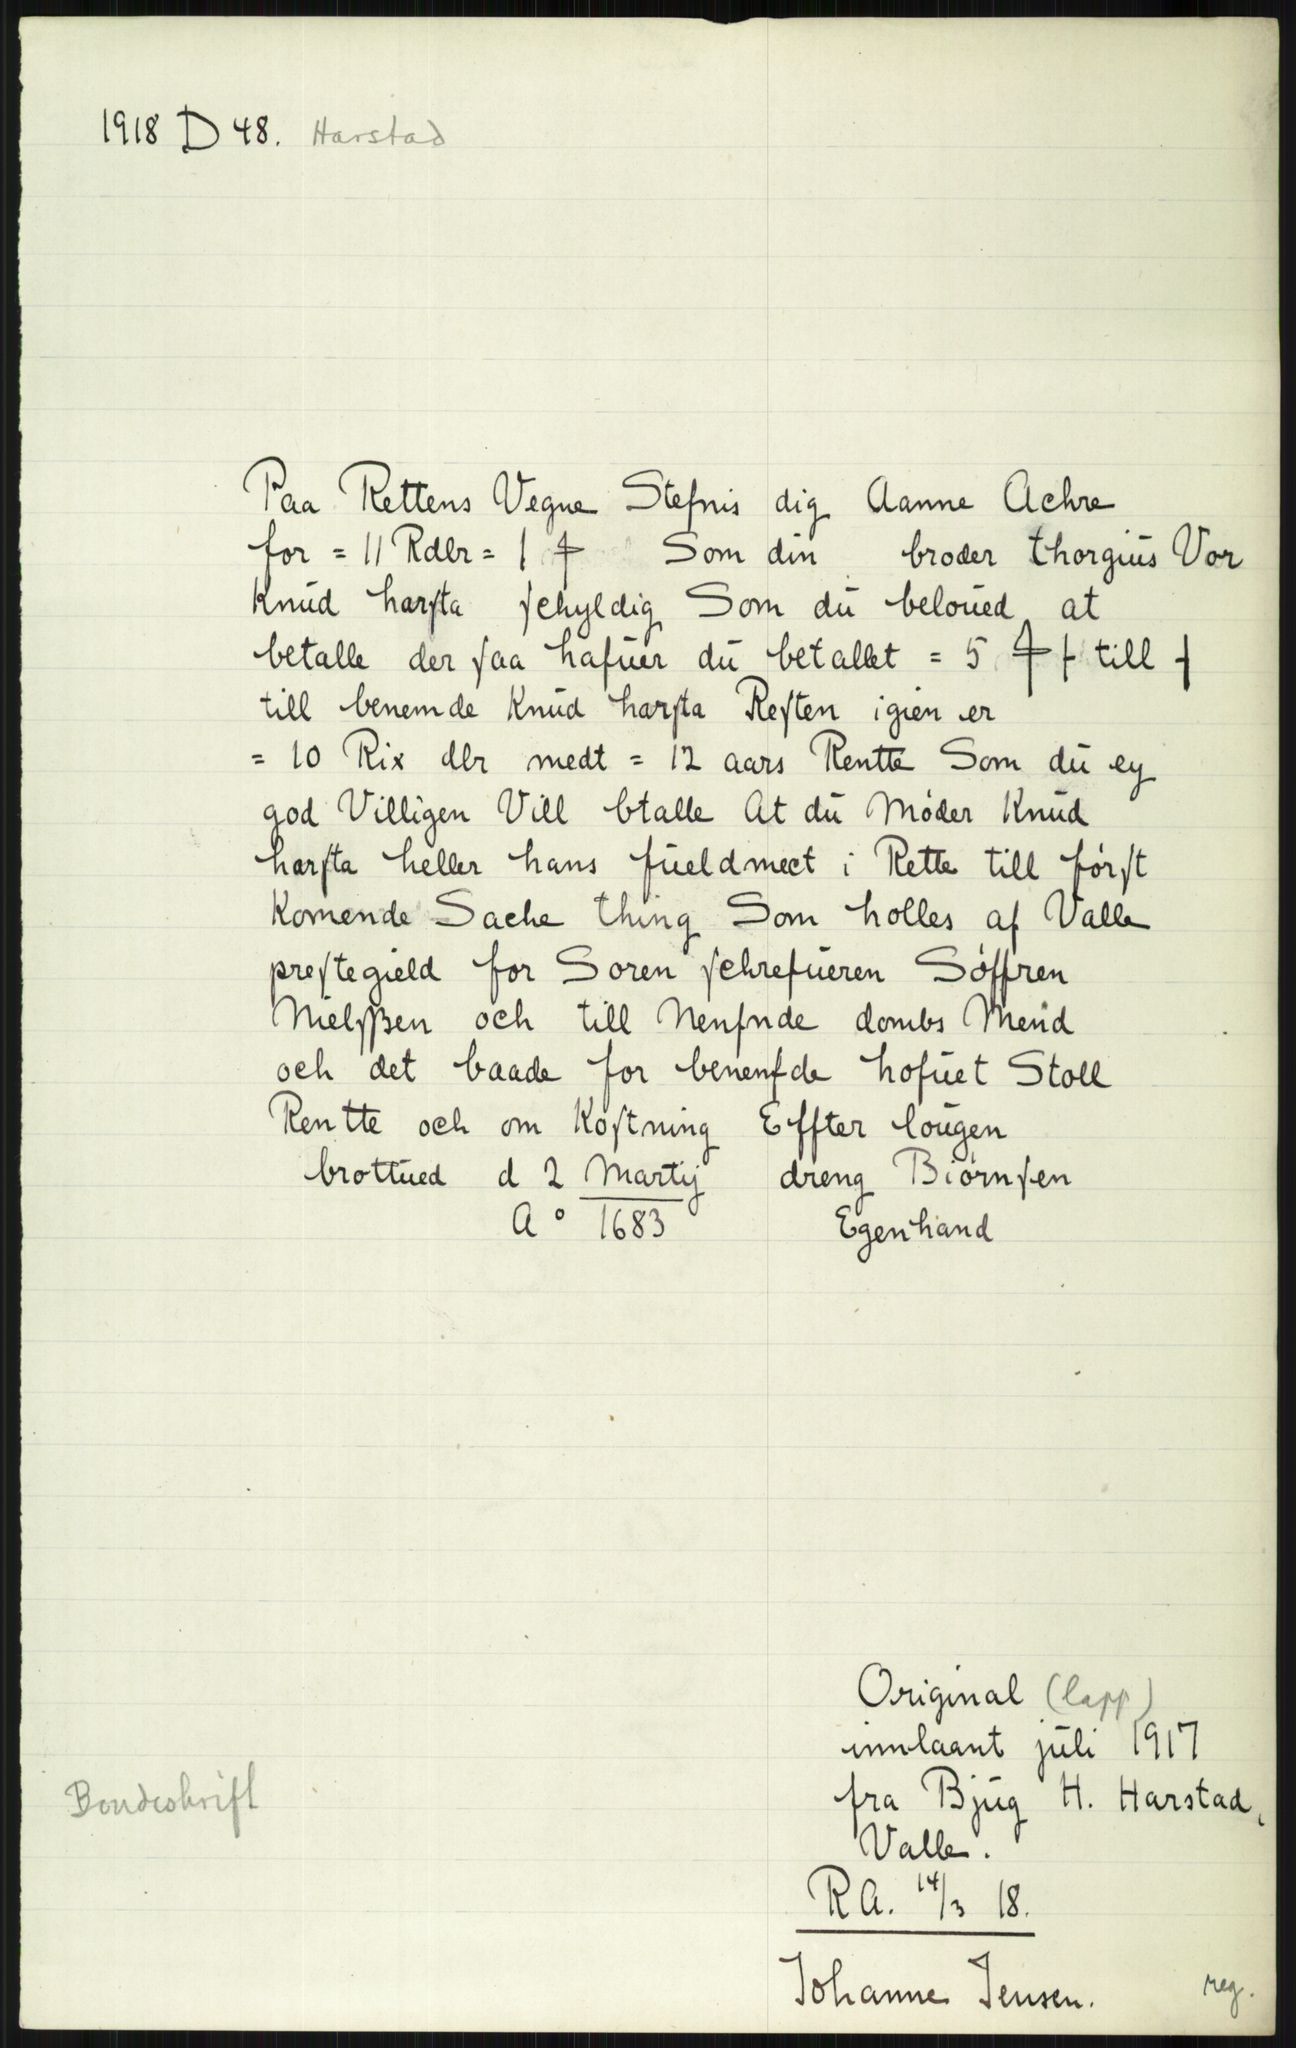 1918 D 48. Harstad
Paa Rettens Vegne Stefnis dig Aanne Achre
for = 11 Rdlr = 1 ⸸ Som din broder thorgius Vor
Knud harsta schyldig Som du beloued at
betalle der saa hafuer du betallet = 5 ⸸ ⸠ till ⸡
till benemde Knud harsta Resten igien er
= 10 Rix dlr medt = 12 aars Rentte Som du ey
god Villigen Vill btalle At du Møder Knud
harsta heller hans fueldmect i Rette till først
Komende Sache thing Som holles af Valle
prestegield for Soren schrefueren Søffren
Nielsßen och till Nenfnde dombs Mend
och det baade for benenfde hofuet Stoll
Rentte och om Kostning Effter lougen
brottued d 2 Martij dreng Biørnsen
A° 1683 Egenhand
Original (lapp)
innlaant juli 1917
fra Bjug H. Harstad,
Valle.
Bondeskrift
R A. 14/3 18.
Johanne Jensen.
reg.